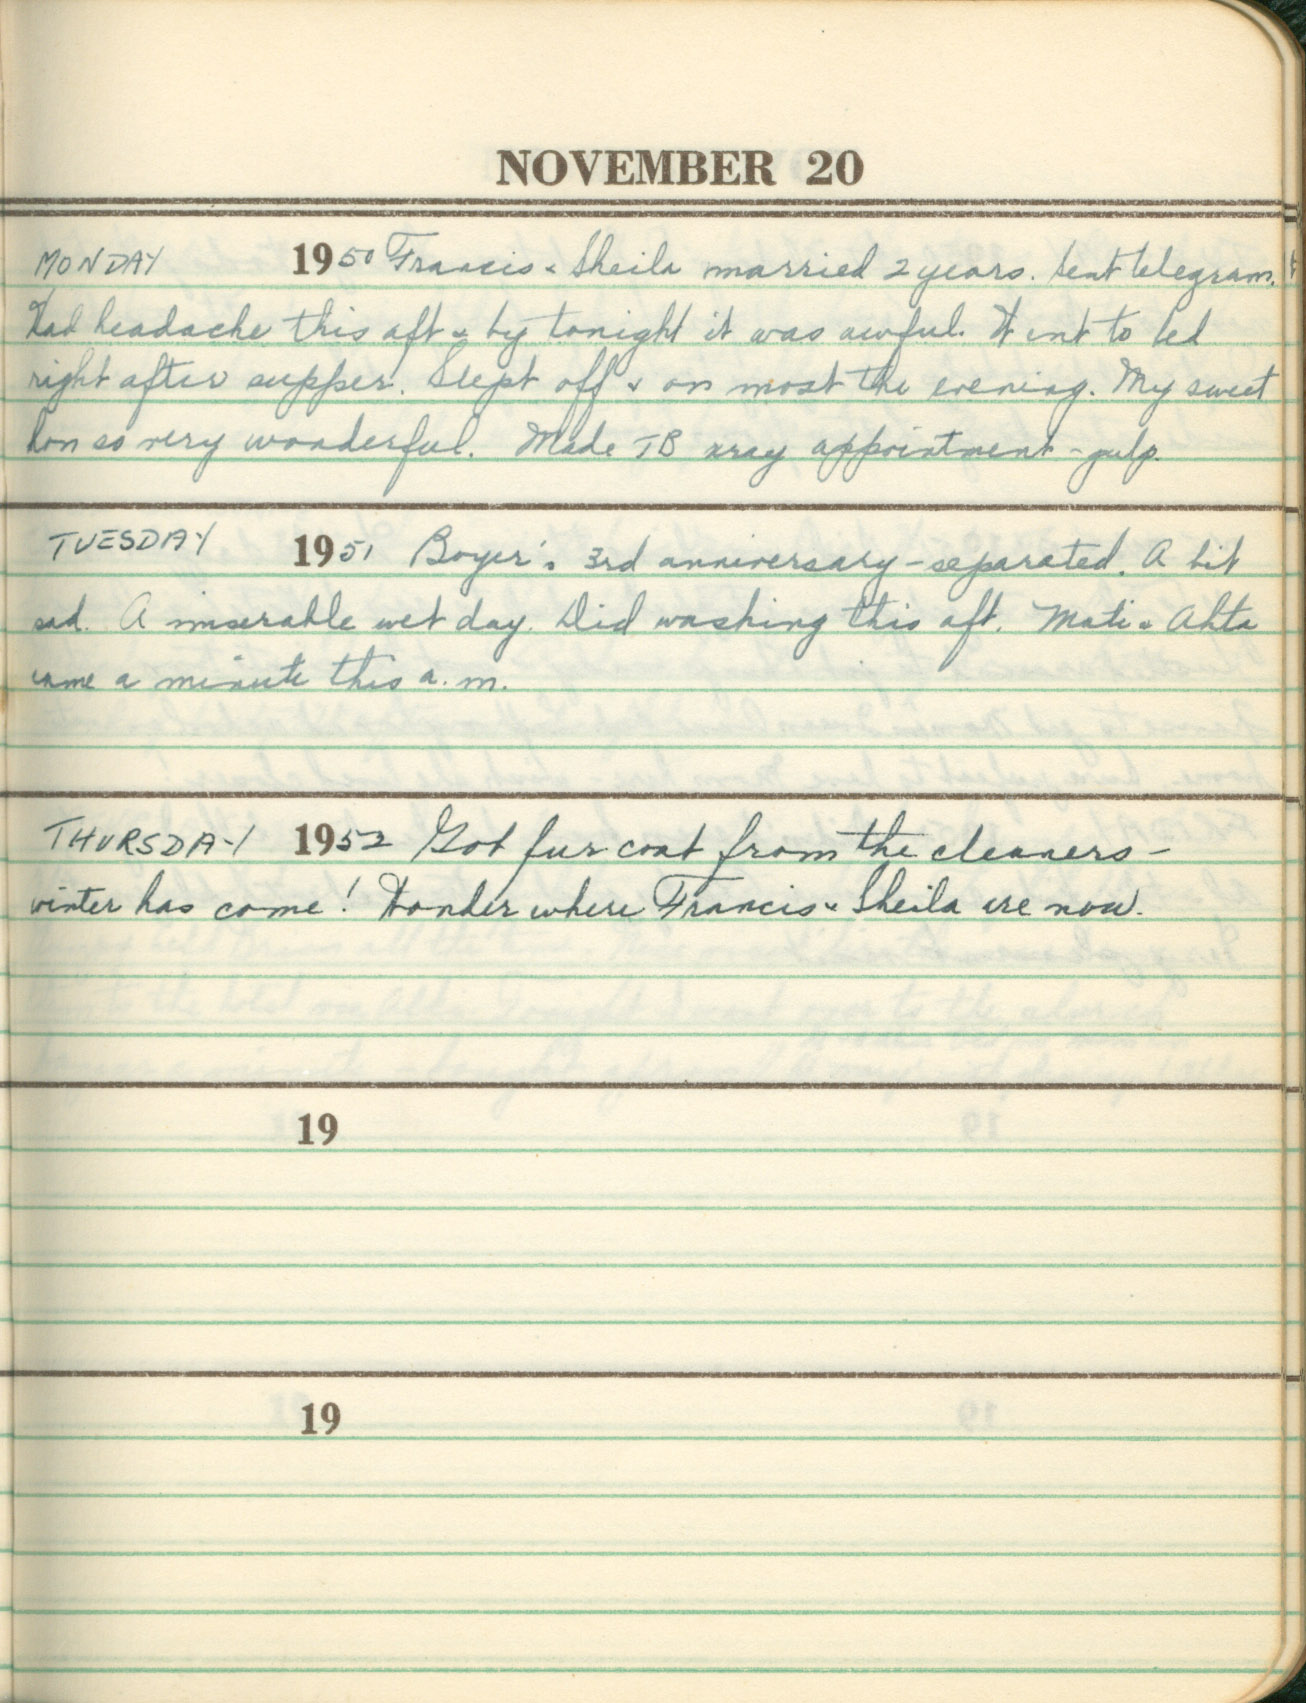 NOVEMBER 20
MONDAY 1950 Francis & Sheila married 2 years. Sent telegram.
Had headache this aft & by tonight it was awful. Went to bed
right after supper. Slept off & on most the evening. My sweet
hon so very wonderful. Made TB xray appointment - gulp.
TUESDAY 1951 Boyer's 3rd anniversary - separated. A bit
sad. A miserable wet day. Did washing this aft. & Ahta
came a minute this a.m.
THURSDAY 1952 Got fur coat from the cleaners -
winter has come! Wonder where Francis & Sheila are now.
19
19